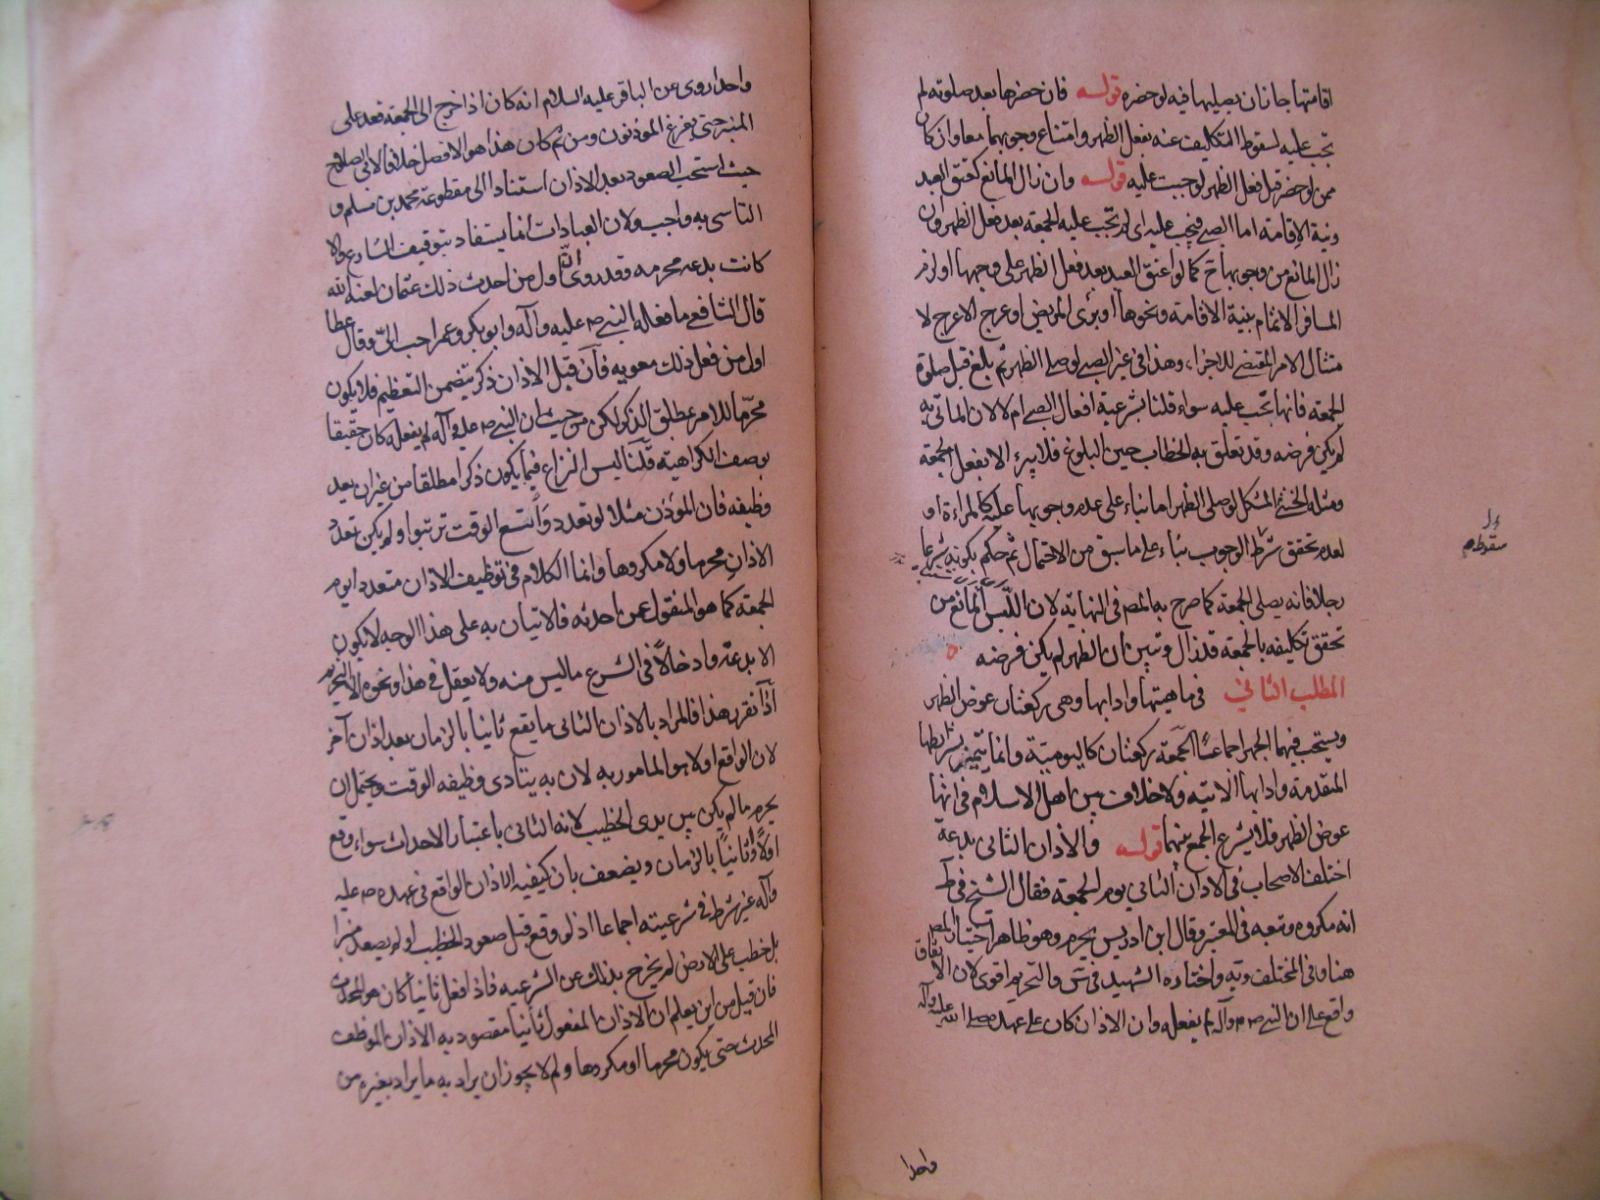 اقامتها جاز ان يصليها فيه لو حضره قوله فان حضرها بعد صلوته لم
تجب عليه لسقوط التكليف عنه بفعل الظهر وامتناع وجوبهما معا وان كان
ممن لو حضر قبل فعل الظهر لوجبت عليه قوله وان زال المانع كعتق العبد
ونية الاقامة اما الصبي فتجب عليه اي لم تجب عليه الجمعة بعد فعل الظهر وان
زال المانع من وجوبها ح كما لو اعتق العبد بعد فعل الظهر على وجهها او لزم
المسافر الاتمام بنية الاقامة ونحوها او برئ المريض او عرج الاعرج لا
متثال الامر المقتضي للاجزاء وهذا في غير الصبي لو صلى الظهر ثم بلغ قبل صلوة
الجمعة فانها تجب عليه سواء قلنا بشرعية افعال الصبي ام لا لان الماتي به
لم يكن فرضه وقد تعلق به الخطاب حين البلوغ فلا يبرء الا بفعل الجمعة
ومثله الخنثى المشكل لو صلى الظهر اما بناء على عدم وجوبها عليه كالمراءة او
لعدم تحقق شرط الوجوب بناء على ما سبق من الاحتمال ثم حكم بكونه شرعا
رجلا فانه يصلي الجمعة كما صرح به المص في النهاية لان اللبس المانع من
تحقق تكليفه بالجمعة قد زال وتبين ان الظهر لم يكن فرضه
المطلب الثاني في ماهيتها وادابها وهي ركعتان عوض الظهر
ويستحب فيهما الجهر اجماعا الجمعة ركعتان كاليومية وانما تتميز بشرايطها
المتقدمة وادابها الاتية ولا خلاف بين اهل الاسلام في انها
عوض الظهر فلا يشرع الجمع بينهما قوله والاذان الثاني بدعة
اختلف الاصحاب في الاذان الثاني يوم الجمعة فقال الشيخ في ط
انه مكروه وتبعه في المعتبر وقال ابن ادريس يحرم وهو ظاهر اختيار المص
هنا وفي المختلف ويه واختاره الشهيد في س والتحريم اقوى لان الاتفاق
واقع على ان النبي ص م وآله لم يفعله وان الاذان كان على عهده صلى الله عليه وآله
سقوط م
واحدا
واحدا روى عن الباقر عليه السلام انه كان اذا خرج الى الجمعة قعد على
المنبر حتى يفرغ المؤذنون ومن ثم كان هذا هو الافضل خلافا لابي الصلاح
حيث استحب الصعود بعد الاذان استنادا الى مقطوعة محمد بن مسلم و
التاسي به واجب ولان العبادات انما يستفاد بتوقيف الشارع والا
كانت بدعة محرمة وقد روى ان اول من احدث ذلك عثمان لعنه الله
قال الشافعي ما فعله النبي ص عليه وآله وابو بكر وعمر احب الي وقال عطا
اول من فعل ذلك معويه فآن قيل الاذان ذكر يتضمن التعظيم فلا يكون
محرما للامر بمطلق الذكر لكن من حيث ان النبي ص عليه وآله لم يفعله كان حقيقا
بوصف الكراهية قلنا ليس النزاع فيما يكون ذكرا مطلقا من غير ان يعد
وظيفه فان المؤذن مثلا لو تعدد واتسع الوقت ترتبوا ولم يكن تعدد
الاذان محرما ولا مكروها وانما الكلام في توظيف الاذان متعددا يوم
الجمعة كما هو المنقول عمن احدثه فالاتيان به على هذا الوجه لا يكون
الا بدعة وادخالا في الشرع ما ليس منه ولا يعقل في هذا ونحوه الا التحريم
اذا تقرر هذا فالمراد بالاذان الثاني ما يقع ثانيا بالزمان بعد اذان آخر
لان الواقع اولا هو المامور به لان به يتادى وظيفه الوقت ويحتمل ان
يحرم ما لم يكن بين يدي الخطيب لانه الثاني باعتبار الاحداث سواء وقع
اولا او ثانيا بالزمان ويضعف بان كيفيه الاذان الواقع في عهده ص عليه
وآله غير شرط في شرعيته اجماعا اذ لو وقع قبل صعود الخطيب او لم يصعد منبرا
بل خطب على الارض لم يخرج بذلك عن الشرعيه فاذا فعل ثانيا كان هو المحدث
فان قيل من اين يعلم ان الاذان المفعول ثانيا مقصود به الاذان الموظف
المحدث حتى يكون محرما او مكروها ولم لا يجوز ان يراد به ما يراد بغيره من